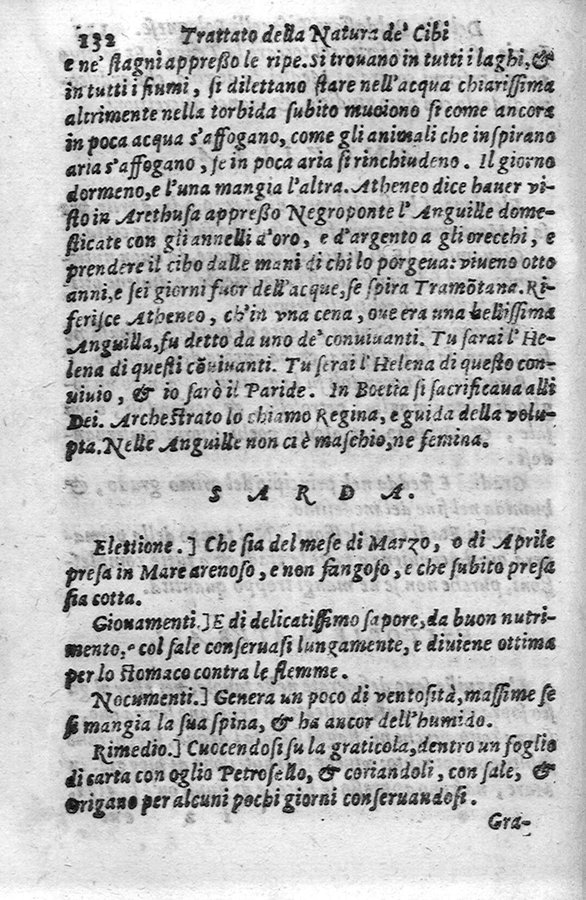 132 Trattato della Natura de' Cibi
e ne' stagni appreßo le ripe. si trouano in tutti i laghi, &
in tutti i fiumi, si dilettano stare nell'acqua chiarissima
altrimente nella torbida subito muoiono si come ancora
in poca acqua s'affogano, come gli animali che inspirano
aria s'affogano, se in poca aria si rinchiudeno. Il giorno
dormeno, e l'una mangia l'altra. Atheneo dice hauer vi-
sto in Arethusa appreßo Negroponte l'Anguille dome-
sticate con gli annelli d'oro, e d'argento a gli orecchi, e
prendere il cibo dalle mani di chi lo porgeua: viueno otto
anni, e sei giorni fuor dell'acque, se spira Tramõtana. Ri-
ferisce Atheneo, ch'in vna cena, oue era una bellissima
Anguilla, fu detto da uno de' conuiuanti. Tu sarai l'He-
lena di questi cõuiuanti. Tu serai l'Helena di questo con-
uiuio, & io sarò il Paride. In Boetia si sacrificaua alli
Dei. Archestrato lo chiamo Regina, e guida della volu-
pta. Nelle Anguille non ci è maschio, ne femina.
S A R D A.
Elettione.] Che sia del mese di Marzo, o di Aprile
presa in Mare arenoso, e non fangoso, e che subito presa
sia cotta.
Giouamenti.] E di delicatissimo sapore, da buon nutri-
mento, e col sale conseruasi lungamente, e diuiene ottima
per lo stomaco contra le flemme.
Nocumenti.] Genera un poco di ventosità, massime se
si mangia la sua spina, & ha ancor dell'humido.
Rimedio.] Cuocendosi su la graticola, dentro un foglio
di carta con oglio Petrosello, & coriandoli, con sale, &
origano per alcuni pochi giorni conseruandosi.
Gra-